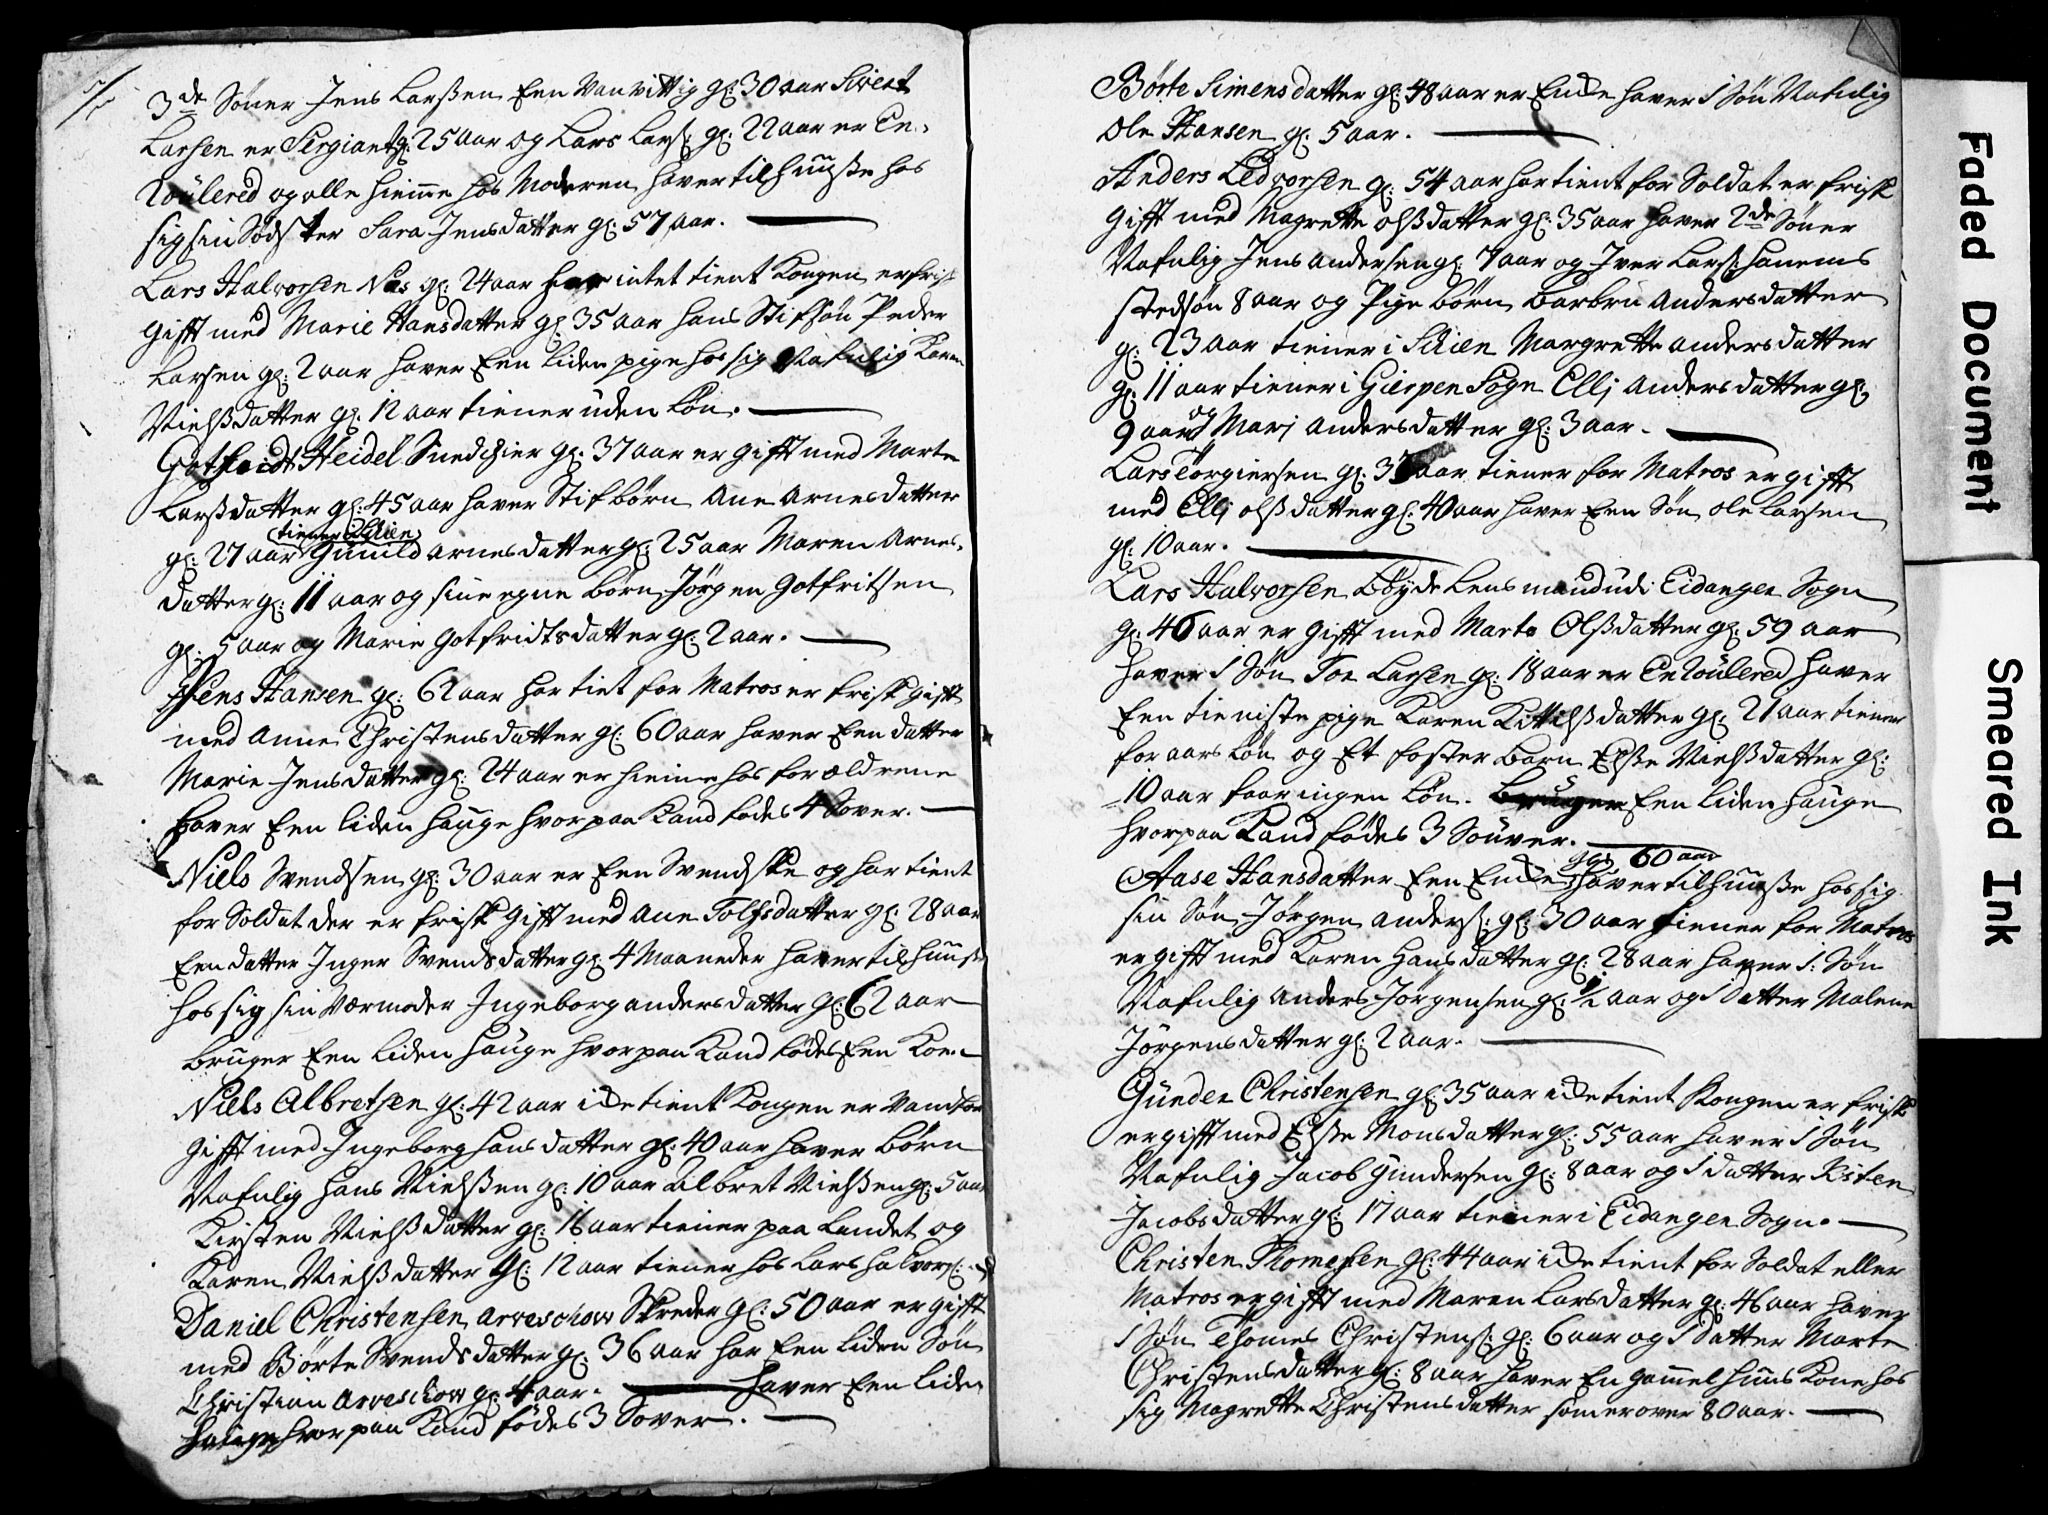 3de Søner Jens Larssen Een Vanvittig gl: 30 aar Siwert
Larsen er Sergiant gl: 25 aar og Lars Lars: gl: 22 aar er En-
roulered og alle hieme hos Moderen haver til huusse hos
sig sin Södster Sara Jensdatter gl: 57 aar.
Lars Halvorsen Næs gl: 24 aar har intet tient Kongen er frisk
Gifft med Marie Hansdatter gl: 35 aar hans Stifsøn Peder
Larsen gl: 2 aar haver Een liden pige hos sig Nafnlig Karen
Nielssdatter gl: 12 aar tiener uden Løn.
Gotfridt Heidel Snedchier gl: 37 aar er gifft med Marte
Larssdatter gl: 45 aar haver Stifbørn Ane Arnesdatter
tiener i Schien
gl: 27 aar Gunild Arnesdatter gl: 25 aar Maren Arnes-
datter gl: 11 aar og sine egne Børn Jørgen Gotfritsen
gl: 5 aar og Marie Gotfridtsdatter gl: 2 aar.
Jens Hansen gl: 62 aar har tient for Matros er frisk gifft
med Anne Christensdatter gl: 60 aar haver Een datter
Marie Jensdatter gl: 24 aar er hieme hos forældrene
haver Een liden hauge hvorpaa Kand fødes 4 Sover.
Niels Svendsen gl: 30 aar er Een Svendske og har tient
for Soldat der er frisk Gifft med Ane Tolfsdatter gl: 28 aar
Een datter Inger Svendsdatter gl: 4 Maaneder haver til huuse
hos sig sin Værmoder Ingeborg Andersdatter gl: 62 aar
bruger Een liden hauge hvorpaa Kand fødes Een Koe.
Niels Albretsen gl: 42 aar icke tient Kongen er Vandfør
Gifft med Ingeborg Hansdatter gl: 40 aar haver Børn
Nafnlig Hans Nielssen gl: 10 aar Albret Nielssen gl: 5 aar
Kirsten Nielssdatter gl: 16 aar tiener paa Landet og
Karen Nielssdatter gl: 12 aar tiener hos Lars Halvors:
Daniel Christensen Arveschow Skreder gl: 50 aar er gifft
med Børte Svendsdatter gl: 36 aar har Een liden Søn
Christian Arveschow gl: 4 aar. haver Een liden
hauge hvorpaa Kand fødes 3 Sover.
Børte Simensdatter gl: 48 aar er Encke haver 1 Søn Nafnlig
Ole Hansen gl: 5 aar.
Anders Ledvorsen gl: 54 aar har tient for Soldat er frisk
Gifft med Magrette Olssdatter gl: 35 aar haver 2de Søner
Nafnlig Jens Andersen gl: 7 aar og Iver Lars: hanems
stedsøn 8 aar og Pige børn Barbru Andersdatter
gl: 23 aar tiener i Schien Margrette Andersdatter
gl: 11 aar tiener i Gierpen Sogn Ellj Andersdatter gl:
9 aar og Marj Andersdatter gl: 3 aar.
Lars Torgiersen gl: 37 aar tiener for Matros er gifft
med Ellj Olssdatter gl: 40 aar haver Een Søn Ole Larsen
gl: 10 aar.
Lars Halvorsen Bøyde Lensmand udi Eidanger Sogn
gl: 46 aar er Gifft med Marte Olssdatter gl: 59 aar
haver 1 Søn Tor Larsen gl: 18 aar er Enroulered haver
Een tieniste pige Karen Kittelssdatter gl: 21 aar tiener
for aars Løn og Et foster Barn Elsse Nielssdatter gl:
10 aar faar ingen Løn. Bruger Een liden hauge
hvorpaa Kand fødes 3 Souver.
gl: 60 aar
Aase Hansdatter Een Encke haver til huusse hos sig
sin Søn Jørgen Anders: gl: 30 aar tiener for Matros
er gifft med Karen Hansdatter gl: 28 aar haver 1: Søn
Nafnlig Anders Jørgensen gl: 1/2 aar og 1 datter Malene
Jörgensdatter gl: 2 aar.
Günder Christensen gl: 35 aar icke tient Kongen er frisk
er gifft med Elsse Monsdatter gl: 55 aar haver 1 Søn
Nafnlig Jacob Gundersen gl: 8 aar og 1 datter Kisten
Jacobsdatter gl: 17 aar tiener i Eidanger Sogn.
Christen Thomesen gl: 44 aar icke tient for Soldat eller
Matros er gifft med Maren Larsdatter gl: 46 aar haver
1 Søn Thomes Christens: gl: 6 aar og 1 datter Marte
Christensdatter gl: 8 aar haver En gammel huus Kone hos
sig Magrette Christensdatter som er over 80 aar.
Faded Document
Smeared Ink